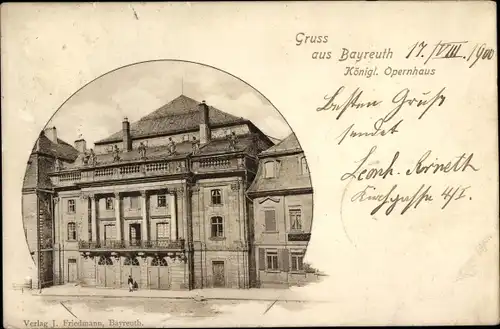 Gruss
aus Bayreuth
Königl. Opernhaus
17./VIII./1900
Besten Gruß
sendet
Leonh. Arneth
Kirchgasse 4/I
Verlag J. Friedmann, Bayreuth.